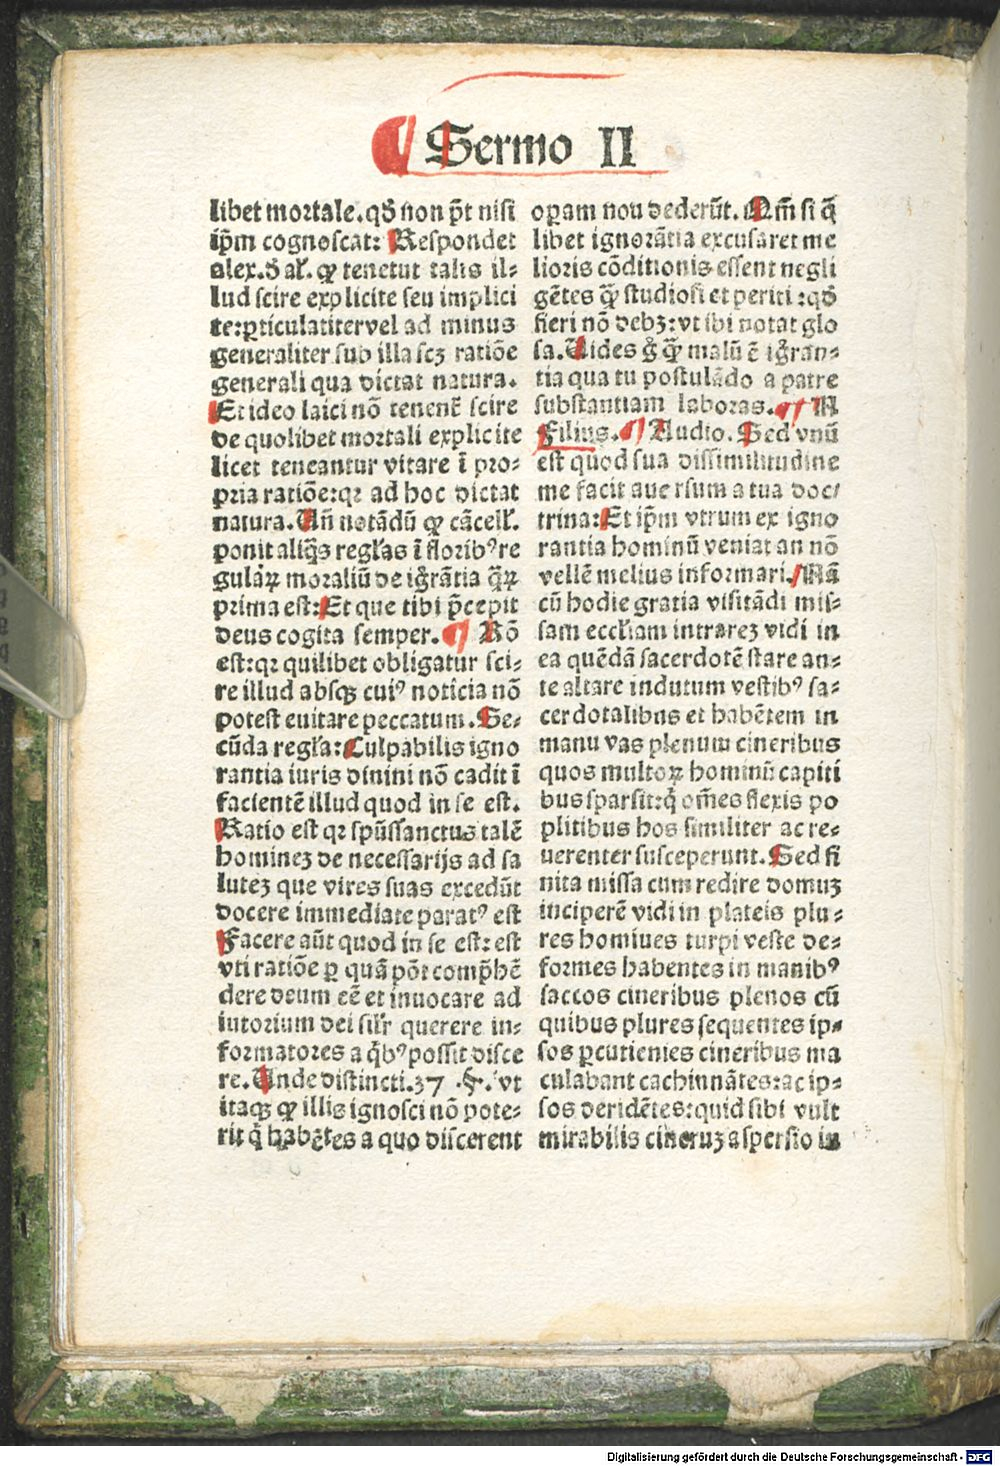 ¶ Sermo II
libet mortale. qđ non p̄t nisi
ip̄m cognoscat: Respondet
alex. đ al̕. ꝙ tenetut talis il⸗
lud scire explicite seu implici
te: ꝑticulatiter vel ad minus
generaliter sub illa scꝫ ratiõe
generali qua dictat natura.
Et ideo laici nõ tenent̃ scire
de quolibet mortali explicite
licet teneantur vitare ĩ pro⸗
pria ratiõe: qꝛ ad hoc dictat
natura. Uñ notãdũ ꝙ cãcell̕.
ponit aliq̃s regl̕as ĩ floribꝰ re
gulaꝝ moraliũ de ig̃rãtia q̃ꝝ
prima est: Et que tibi p̄cepit
deus cogita semper. ¶ Rõ
est: qꝛ quilibet obligatur sci⸗
re illud absqꝫ cuiꝰ noticia nõ
potest euitare peccatum. Se⸗
cũda regl̕a: Culpabilis igno
rantia iuris diuini nõ cadit ĩ
facientẽ illud quod in se est.
Ratio est qꝛ sp̃ussanctus talẽ
hominez de necessarijs ad sa
lutez que vires suas excedũt
docere immediate paratꝰ est
Facere aũt quod in se est: est
vti ratiõe ꝑ quã põt comp̃hẽ
dere deum eẽ et inuocare ad
iutorium dei sil̕r querere in⸗
formatores a q̃bꝰ possit disce
re. Unde distincti. 37 .§. vt
itaqꝫ ꝙ illis ignosci nõ pote⸗
rit q̃ habẽtes a quo discerent
oꝑam nou dederũt. Nam̃ si q̃
libet ignorãtia excusaret me
lioris cõditionis essent negli
gẽtes q̃ꝫ studiosi et periti: qđ
fieri nõ debꝫ: vt ibi notat glo
sa. Uides g̃ q̃ꝫ malũ ẽ ig̃ran⸗
tia qua tu postulãdo a patre
substantiam laboras. ¶ A
Filius. ¶ Audio. Sed vnũ
est quod sua dissimilitudine
me facit auersum a tua doc/
trina: Et ip̄m vtrum ex igno
rantia hominũ veniat an nõ
vellẽ melius informari. Nã
cũ hodie gratia visitãdi mis⸗
sam eccl̕iam intrarez vidi in
ea quẽdã sacerdotẽ stare an⸗
te altare indutum vestibꝰ sa⸗
cerdotalibus et habẽtem in
manu vas plenum cineribus
quos multoꝝ hominũ capiti
bus sparsit: q̃ om̃es flexis po
plitibus hos similiter ac re⸗
uerenter susceperunt. Sed fi
nita missa cum redire domuz
inciperẽ vidi in plateis plu⸗
res homiues turpi veste de⸗
formes habentes in manibꝰ
saccos cineribus plenos cũ
quibus plures sequentes ip⸗
sos ꝑcutientes cineribus ma
culabant cachinnãtes: ac ip⸗
sos deridẽtes: quid sibi vult
mirabilis cineruz aspersio in
Digitalisierung gefördert durch die Deutsche Forschungsgemeinschaft - DFG